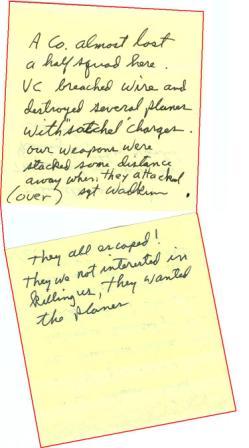 A Co. almost lost
a half squad here.
VC breached wire and
destroyed several planes
with "satchel" charges.
our weapons were
stacked some distance
away when they attacked
(over) sgt Wadkins
they all escaped!
they we not interested in
killing us, they wanted
the planes